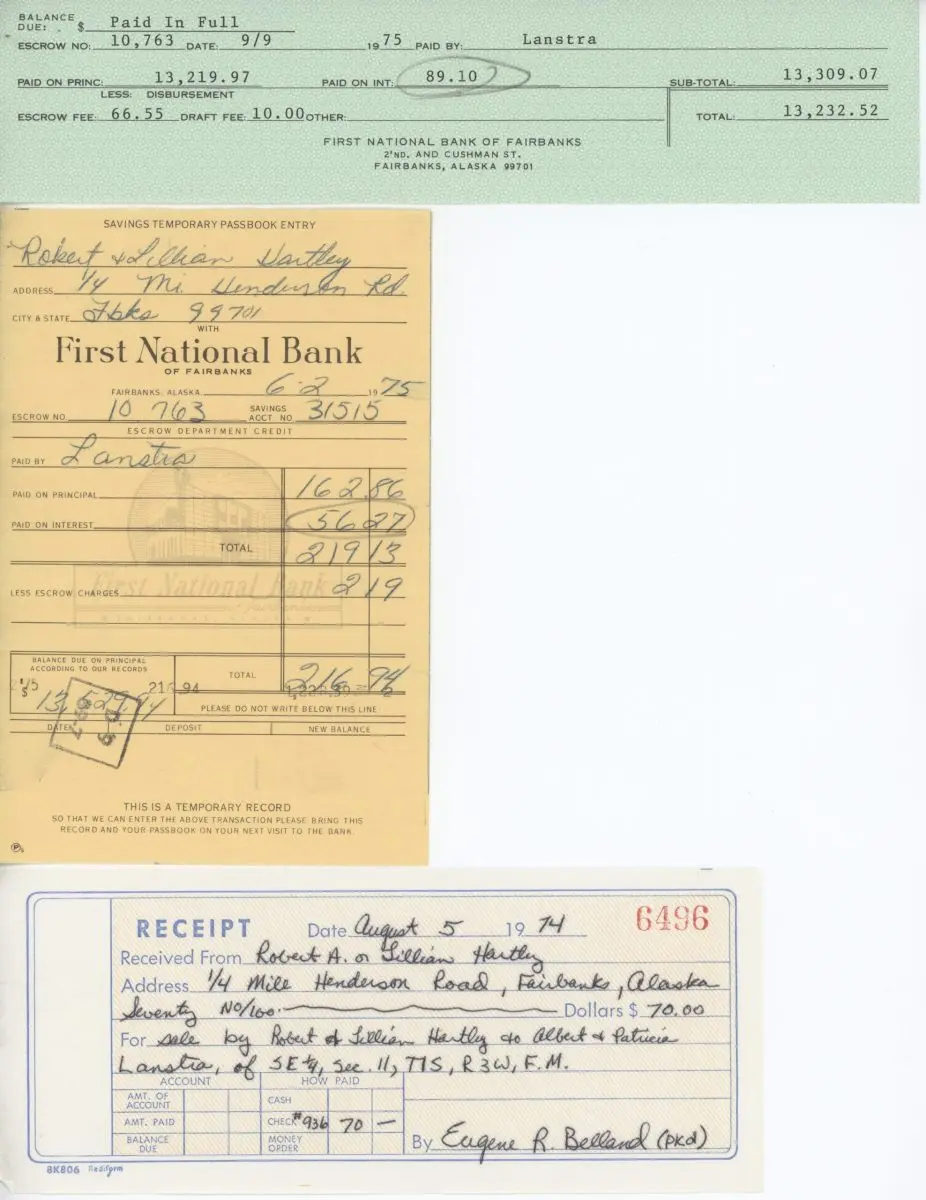 BALANCE
DUE: $ Paid In Full
ESCROW NO: 10,763 DATE: 9/9 1975 PAID BY: Lanstra
PAID ON PRINC: 13,219.97 PAID ON INT: 89.10 SUB-TOTAL: 13,309.07
LESS: DISBURSEMENT
ESCROW FEE: 66.55 DRAFT FEE: 10.00 OTHER: TOTAL: 13,232.52
FIRST NATIONAL BANK OF FAIRBANKS
2'ND. AND CUSHMAN ST.
FAIRBANKS, ALASKA 99701
SAVINGS TEMPORARY PASSBOOK ENTRY
Robert & Lillian Hartley
ADDRESS 1/4 Mi. Henderson Rd.
CITY & STATE Fbks 99701
WITH
First National Bank
OF FAIRBANKS
FAIRBANKS, ALASKA 6-2 1975
ESCROW NO. 10 763 SAVINGS ACCT NO 31515
ESCROW DEPARTMENT CREDIT
PAID BY Lanstra
PAID ON PRINCIPAL 162.86
PAID ON INTEREST 56 27
TOTAL 219 13
First National Bank
LESS ESCROW CHARGES 2 19
BALANCE DUE ON PRINCIPAL
ACCORDING TO OUR RECORDS
TOTAL 216 94
$ 13,529.94
PLEASE DO NOT WRITE BELOW THIS LINE
DATE DEPOSIT NEW BALANCE
THIS IS A TEMPORARY RECORD
SO THAT WE CAN ENTER THE ABOVE TRANSACTION PLEASE BRING THIS
RECORD AND YOUR PASSBOOK ON YOUR NEXT VISIT TO THE BANK.
RECEIPT Date August 5 1974 6496
Received From Robert A. or Lillian Hartley
Address 1/4 Mile Henderson Road, Fairbanks, Alaska
Seventy No/100 Dollars $ 70.00
For sale by Robert & Lillian Hartley to Albert & Patricia
Lanstra, of SE 1/4, Sec. 11, T1S, R3W, F.M.
ACCOUNT HOW PAID
AMT. OF
ACCOUNT CASH
AMT. PAID CHECK #936 70 —
BALANCE
DUE MONEY
ORDER By Eugene R. Belland (pkd)
8K806 Rediform